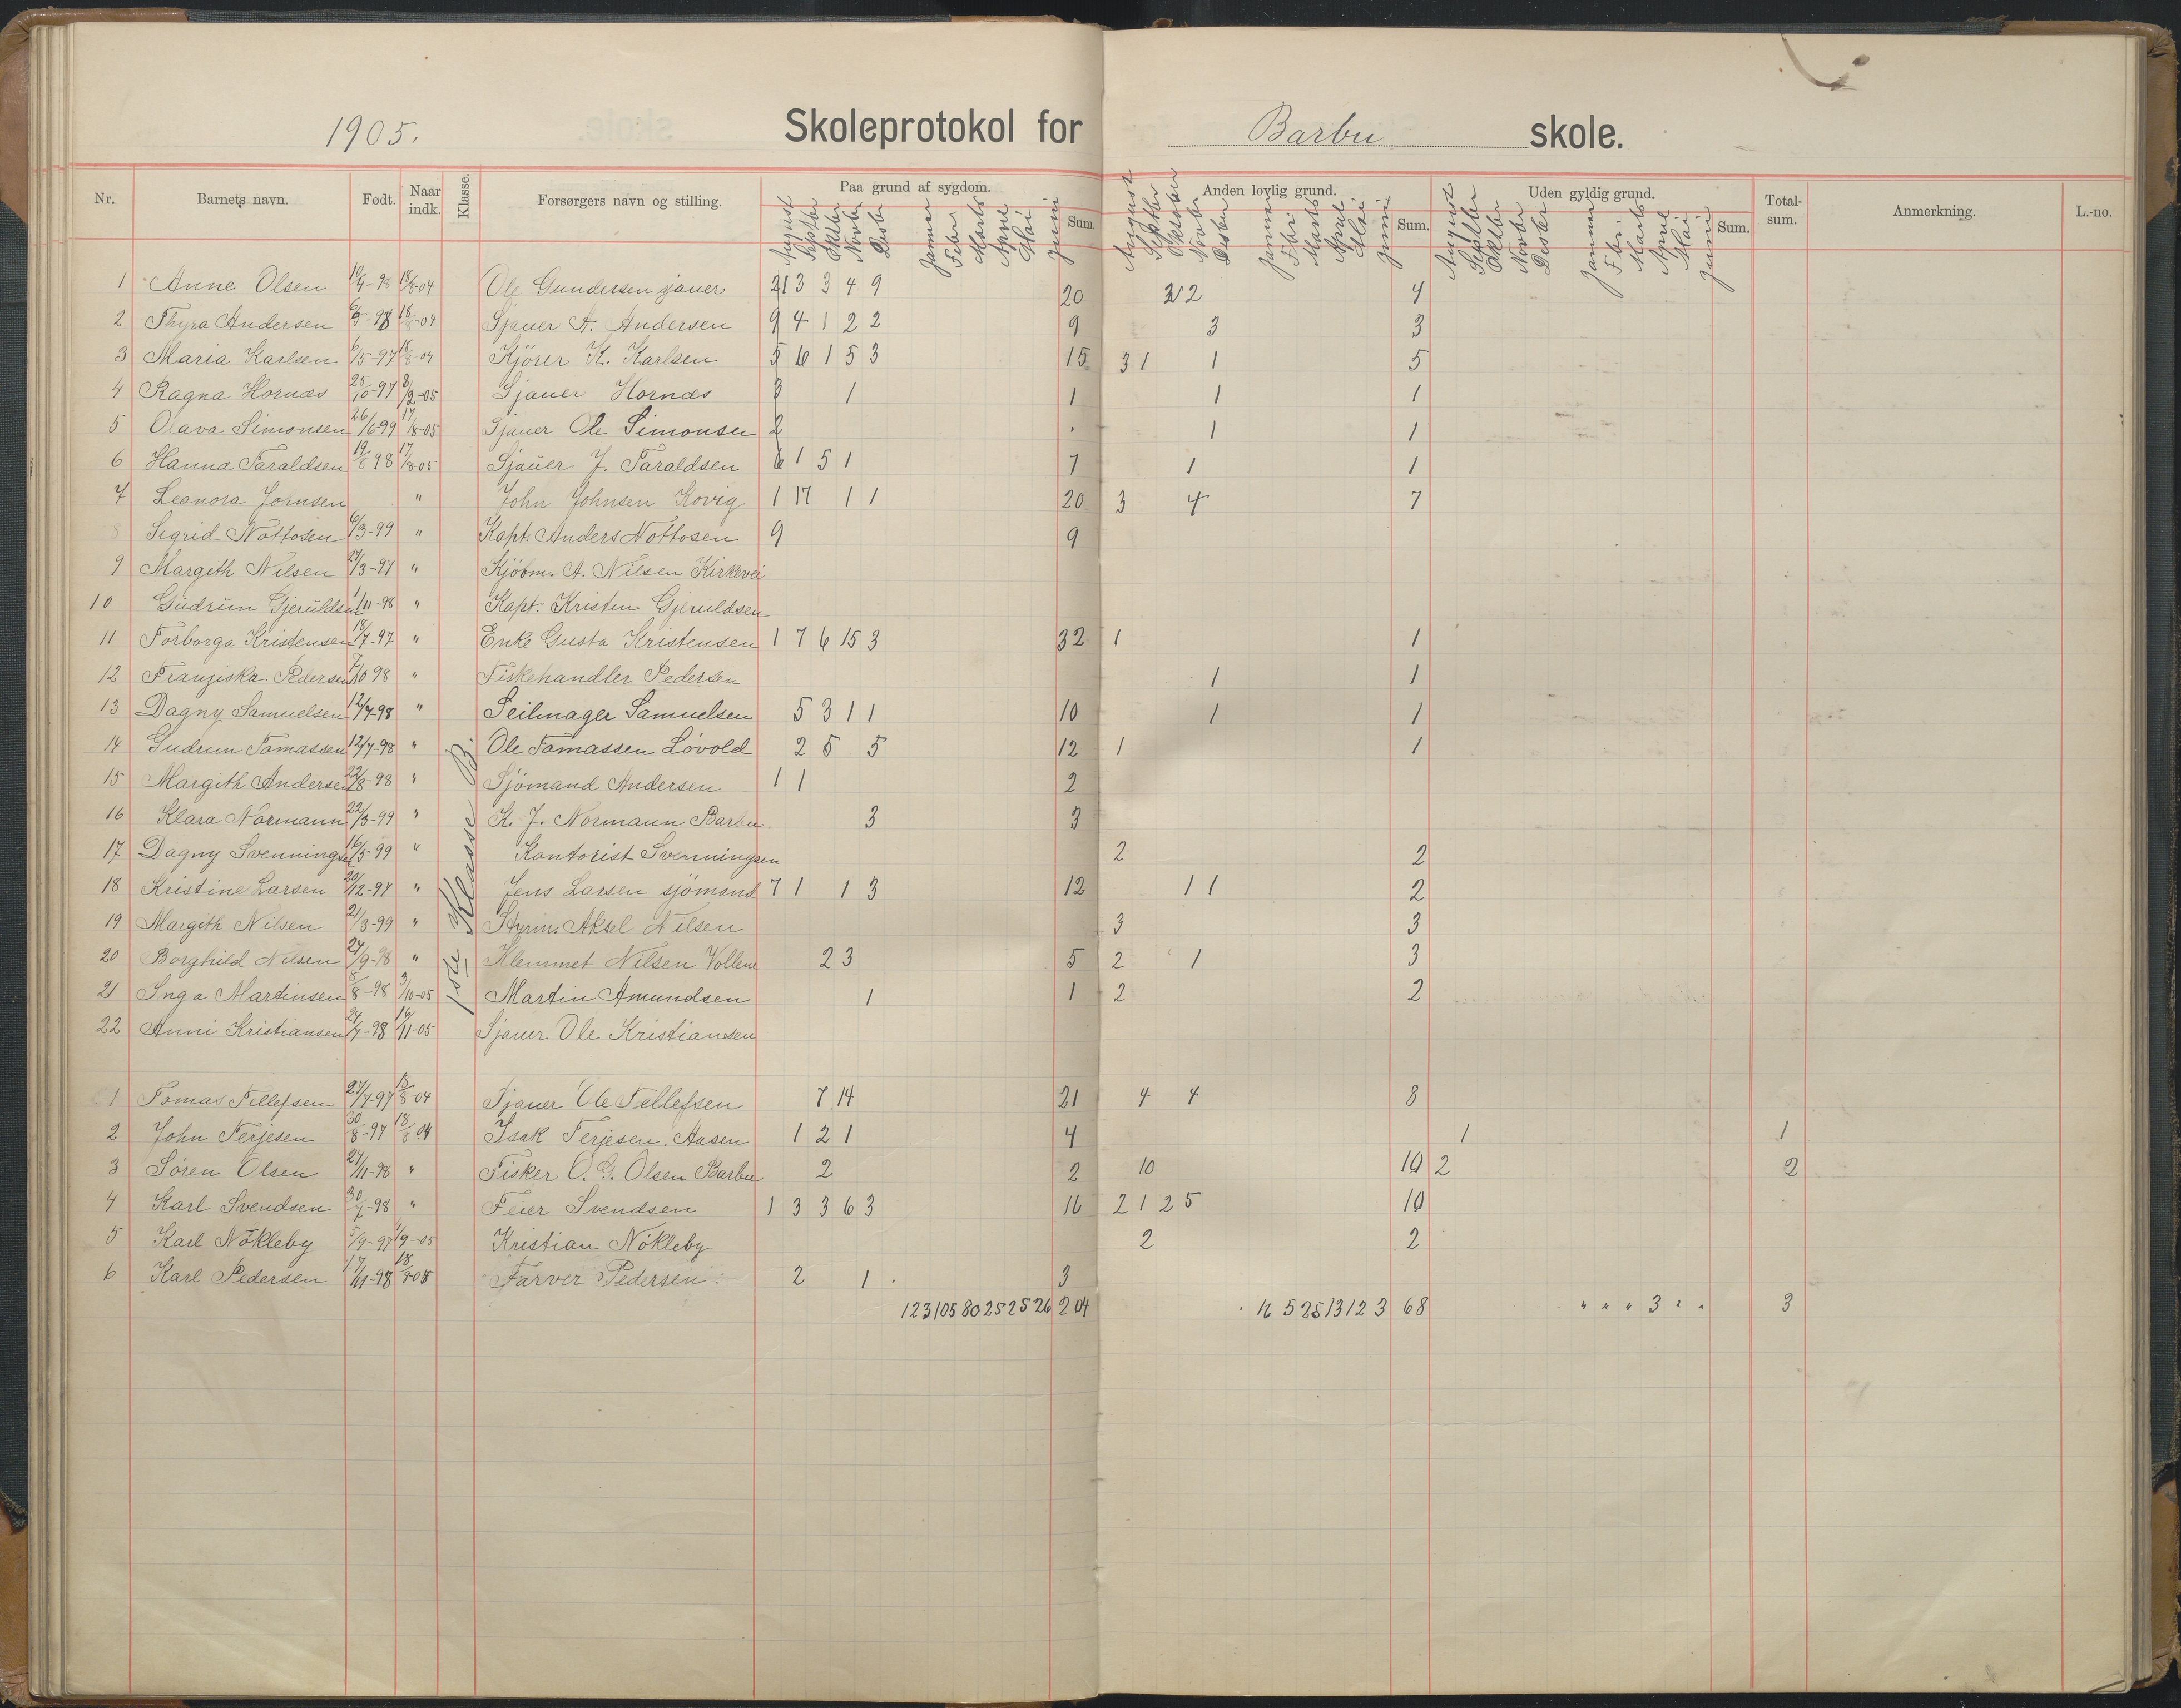 1905. Skoleprotokol for Barbu skole.
Nr. Barnets navn. Født. Naar indk. Klasse. Forsørgers navn og stilling. Paa grund af sygdom. Sum. Anden lovlig grund. Sum. Uden gyldig grund. Sum. Total-sum. Anmerkning. L.-no.
August Septbr Oktbr Novbr Desbr Januar Febr Marts April Mai Juni August Septbr Oktober Novbr Desbr Januar Febr Marts April Mai Juni August Septbr Oktbr Novbr Desbr Januar Febr Marts April Mai Juni
1ste Klasse B.
1 Anne Olsen 10/4-98 18/8-04 Ole Gundersen sjauer 2 1 3 3 4 9 20 2 2 4
2 Thyra Andersen 98 18/8-04 Sjauer A. Andersen 9 4 1 2 2 9 3 3
3 Maria Karlsen 6/5-97 18/8-04 Kjörer K. Karlsen 5 6 1 5 3 15 3 1 1 5
4 Ragna Hornæs 25/10-97 8/9-05 Sjauer Hornæs 3 1 1 1 1
5 Olava Simonsen 26/6 99 17/8-05 Sjauer Ole Simonsen 2 1 1
6 Hanna Taraldsen 19/8 98 17/8-05 Sjauer J. Taraldsen 6 1 5 1 7 1 1
7 Leanora Johnsen " John Johnsen Kovig 1 17 1 1 20 3 4 7
8 Sigrid Nottosen 6/3-99 " Kapt. Anders Nottosen 9 9
9 Margeth Nilsen 27/3-97 " Kjöbm. A. Nilsen Kirkevei
10 Gudrun Gjeruldsen 1/11-98 " Kapt. Kristen Gjeruldsen
11 Torborga Kristensen 18/7-97 " Enke Gusta Kristensen 1 7 6 15 3 32 1 1
12 Franziska Pedersen 7/10 98 " Fiskehandler Pedersen 1 1
13 Dagny Samuelsen 12/7-98 " Seilmager Samuelsen 5 3 1 1 10 1 1
14 Gudrun Tomassen 12/7-98 " Ole Tomassen Lövold 2 5 5 12 1 1
15 Margith Andersen 22/8-98 " Sjömand Andersen 1 1 2
16 Klara Normann 22/3-99 " K. J. Normann Barbu 3 3
17 Dagny Svenningsen 16/5-99 " Kontorist Svenningsen 2 2
18 Kristine Larsen 20/12-97 " Jens Larsen sjömand 7 1 1 3 12 1 1 2
19 Margith Nilsen 21/3-99 " Styrm. Aksel Nilsen 3 3
20 Borghild Nilsen 24/9-98 " Klemmet Nilsen Vollene 2 3 5 2 1 3
21 Inga Martinsen 8/8-98 3/10-05 Martin Amundsen 1 1 2 2
22 Anni Kristiansen 24/7-98 11-05 Sjauer Ole Kristiansen
1 Tomas Tellefsen 27/7-97 18/8-04 Sjauer Ole Tellefsen 7 14 21 4 4 8
2 John Terjesen 30/8-97 18/8 04 Isak Terjesen. Aasen 1 2 1 4 1 1
3 Sören Olsen 24/11-98 " Fisker O. G. Olsen Barbu 2 2 10 10 2 2
4 Karl Svendsen 30/7-98 " Feier Svendsen 1 3 3 6 3 16 2 1 2 5 10
5 Karl Nökleby 5/9-97 1/9-05 Kristian Nökleby 2 2
6 Karl Pedersen 17/11-98 18/8 05 Farver Pedersen 2 1 3
123 105 80 25 25 26 204 16 5 25 13 12 3 68 " " " 3 " " 3